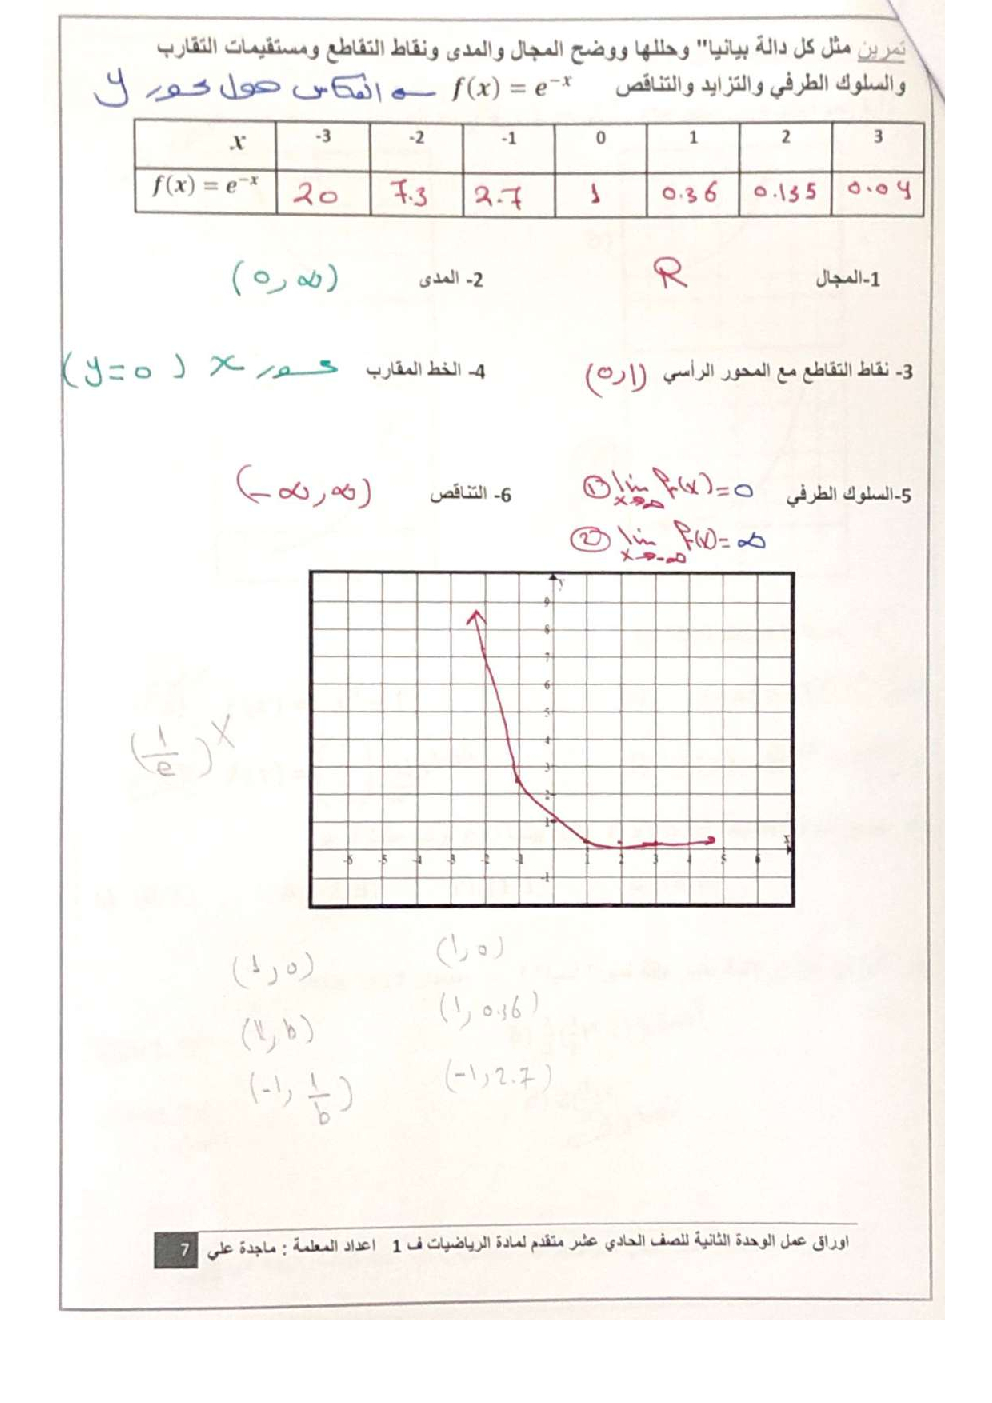 تمرين مثل كل دالة بيانيا" وحللها ووضح المجال والمدى ونقاط التقاطع ومستقيمات التقارب
والسلوك الطرفي والتزايد والتناقص f(x) = e^{-x} انعكاس حول محور y
x -3 -2 -1 0 1 2 3
f(x) = e^{-x} 20 7.3 2.7 1 0.36 0.135 0.04
1-المجال R 2- المدى (0, ∞)
3- نقاط التقاطع مع المحور الرأسي (0,1) 4- الخط المقارب محور x (y=0)
5-السلوك الطرفي ① lim x→∞ f(x)=0 6- التناقص (-∞, ∞)
② lim x→-∞ f(x)=∞
y
9
8
7
6
5
4
3
2
1
-6 -5 -4 -3 -2 -1 1 2 3 4 5 6 x
-1
(1/e)^x
(1,0) (1,0)
(1,b) (1,0.36)
(-1, 1/b) (-1,2.7)
اوراق عمل الوحدة الثانية للصف الحادي عشر متقدم لمادة الرياضيات ف 1 اعداد المعلمة : ماجدة علي 7